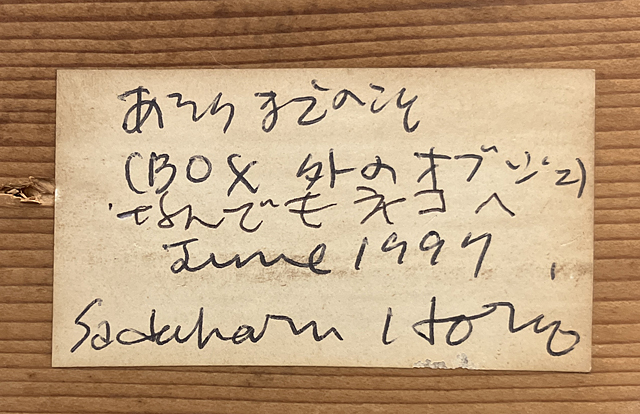 あそらまでのこそ
(BOX 外のオブジェ)
なんでもネコへ
June 1997
Sadaharu Horio